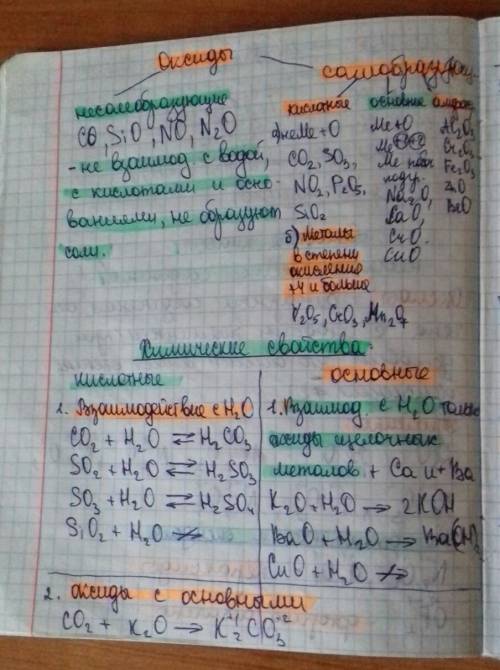 Оксиды
несолеобразующие
CO, SiO, NO, N₂O
- не взаимод с водой,
с кислотами и осно-
ваниями, не образуют
соли.
кислотные
а) неMe + O
CO₂, SO₃,
NO₂, P₂O₅,
SiO₂
б) металлы
в степени
окисления
+4 и больше
V₂O₅, CrO₃, Mn₂O₇
основные
Me + O
Me +1 +2
Me
подгр.
Na₂O,
CaO,
CrO.
CuO
Al₂O₃
Cr₂O₃
Fe₂O₃
ZnO
BeO
Химические свойства.
кислотные
1. Взаимодействие с H₂O
CO₂ + H₂O ⇄ H₂CO₃
SO₂ + H₂O ⇄ H₂SO₃
SO₃ + H₂O ⇄ H₂SO₄
SiO₂ + H₂O ↛
основные
1. Взаимод. с H₂O только
оксиды щелочных
металов. + Ca и + Ba
K₂O + H₂O → 2KOH
BaO + H₂O → Ba(OH)₂
CuO + H₂O ↛
2. оксиды с основными
CO₂ + K₂O → K₂⁺¹CO₃⁻²